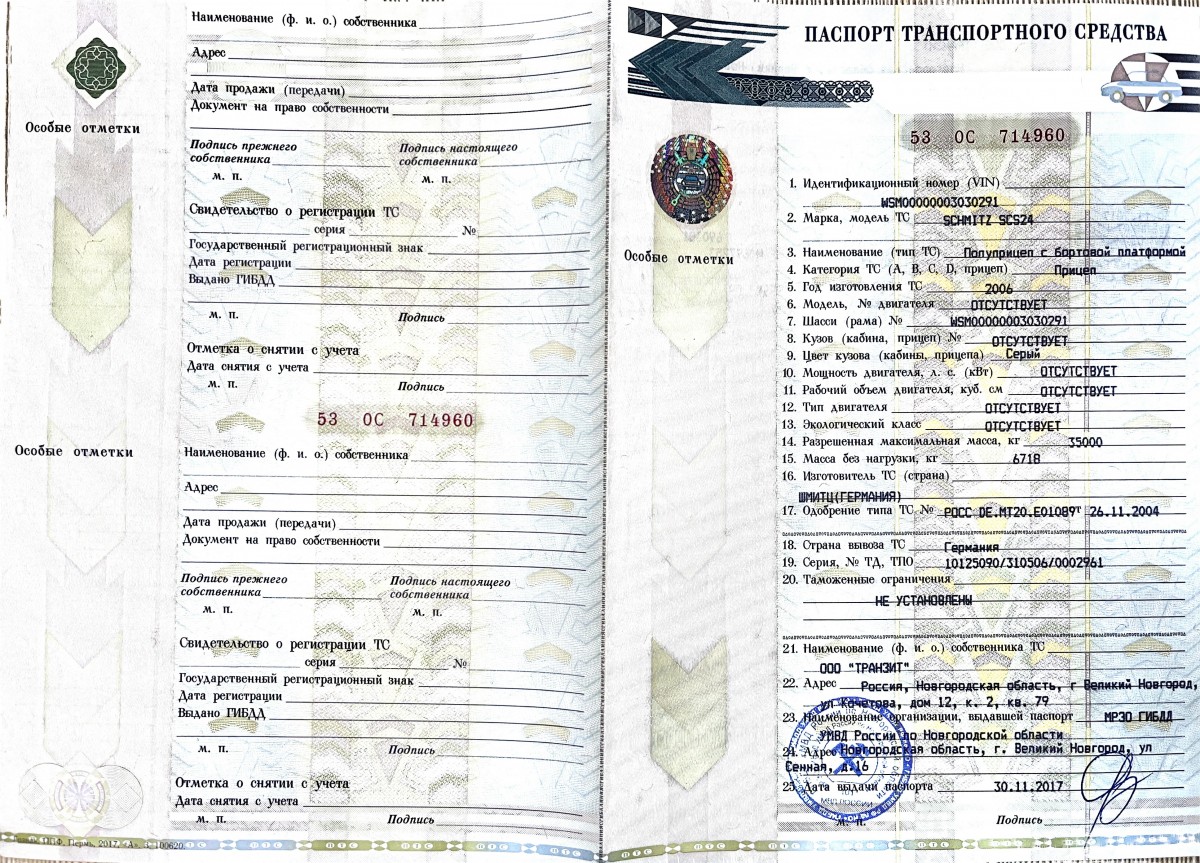 Наименование (ф. и. о.) собственника
Адрес
Дата продажи (передачи)
Документ на право собственности
Особые отметки
Подпись прежнего собственника
Подпись настоящего собственника
м. п.
м. п.
Свидетельство о регистрации ТС
серия №
Государственный регистрационный знак
Дата регистрации
Выдано ГИБДД
м. п.
Подпись
Отметка о снятии с учета
Дата снятия с учета
м. п.
Подпись
53 ОС 714960
Особые отметки
Наименование (ф. и. о.) собственника
Адрес
Дата продажи (передачи)
Документ на право собственности
Подпись прежнего собственника
Подпись настоящего собственника
м. п.
м. п.
Свидетельство о регистрации ТС
серия №
Государственный регистрационный знак
Дата регистрации
Выдано ГИБДД
м. п.
Подпись
Отметка о снятии с учета
Дата снятия с учета
м. п.
Подпись
ПАСПОРТ ТРАНСПОРТНОГО СРЕДСТВА
53 ОС 714960
Особые отметки
1. Идентификационный номер (VIN)
WSM00000003030291
2. Марка, модель ТС SCHMITZ SCS24
3. Наименование (тип ТС) Полуприцеп с бортовой платформой
4. Категория ТС (А, В, С, D, прицеп) Прицеп
5. Год изготовления ТС 2006
6. Модель, № двигателя ОТСУТСТВУЕТ
7. Шасси (рама) № WSM00000003030291
8. Кузов (кабина, прицеп) № ОТСУТСТВУЕТ
9. Цвет кузова (кабины, прицепа) Серый
10. Мощность двигателя, л. с. (кВт) ОТСУТСТВУЕТ
11. Рабочий объем двигателя, куб. см ОТСУТСТВУЕТ
12. Тип двигателя ОТСУТСТВУЕТ
13. Экологический класс ОТСУТСТВУЕТ
14. Разрешенная максимальная масса, кг 35000
15. Масса без нагрузки, кг 6718
16. Изготовитель ТС (страна)
ШМИТЦ(ГЕРМАНИЯ)
17. Одобрение типа ТС № РОСС DE.МТ20.Е01089 от 26.11.2004
18. Страна вывоза ТС Германия
19. Серия, № ТД, ТПО 10125090/310506/0002961
20. Таможенные ограничения
НЕ УСТАНОВЛЕНЫ
21. Наименование (ф. и. о.) собственника ТС
ООО "ТРАНЗИТ"
22. Адрес Россия, Новгородская область, г Великий Новгород,
ул Кочетова, дом 12, к. 2, кв. 79
23. Наименование организации, выдавшей паспорт МРЭО ГИБДД
УМВД России по Новгородской области
24. Адрес Новгородская область, г. Великий Новгород, ул
Сенная, д.16
25. Дата выдачи паспорта 30.11.2017
м. п.
Подпись